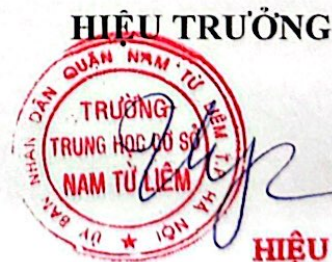 HIỆU TRƯỞNG
ỦY BAN NHÂN DÂN QUẬN NAM TỪ LIÊM T.P HÀ NỘI
TRƯỜNG
TRUNG HỌC CƠ SỞ
NAM TỪ LIÊM
HIỆU